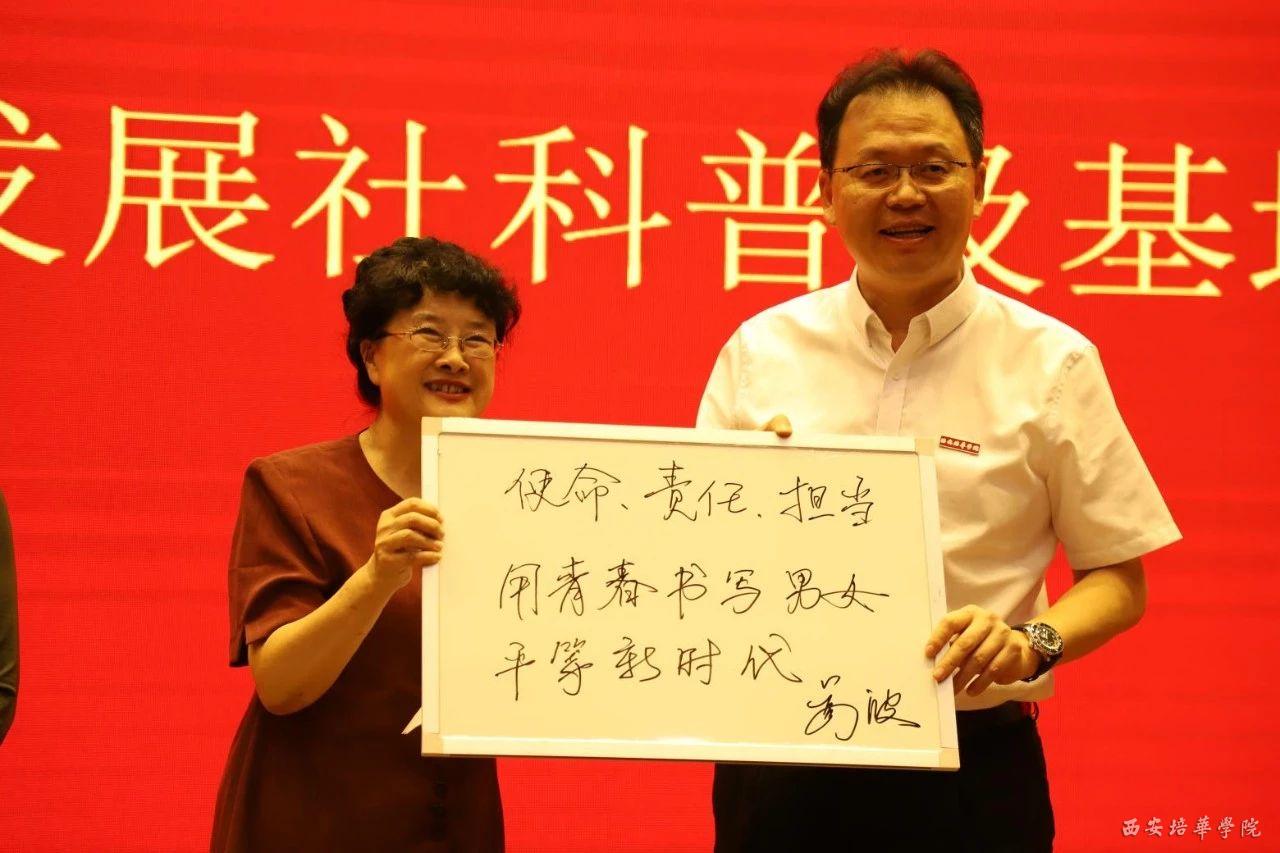 发展社科普及基地
使命、责任、担当
用青春书写男女
平等新时代
西安培華學院